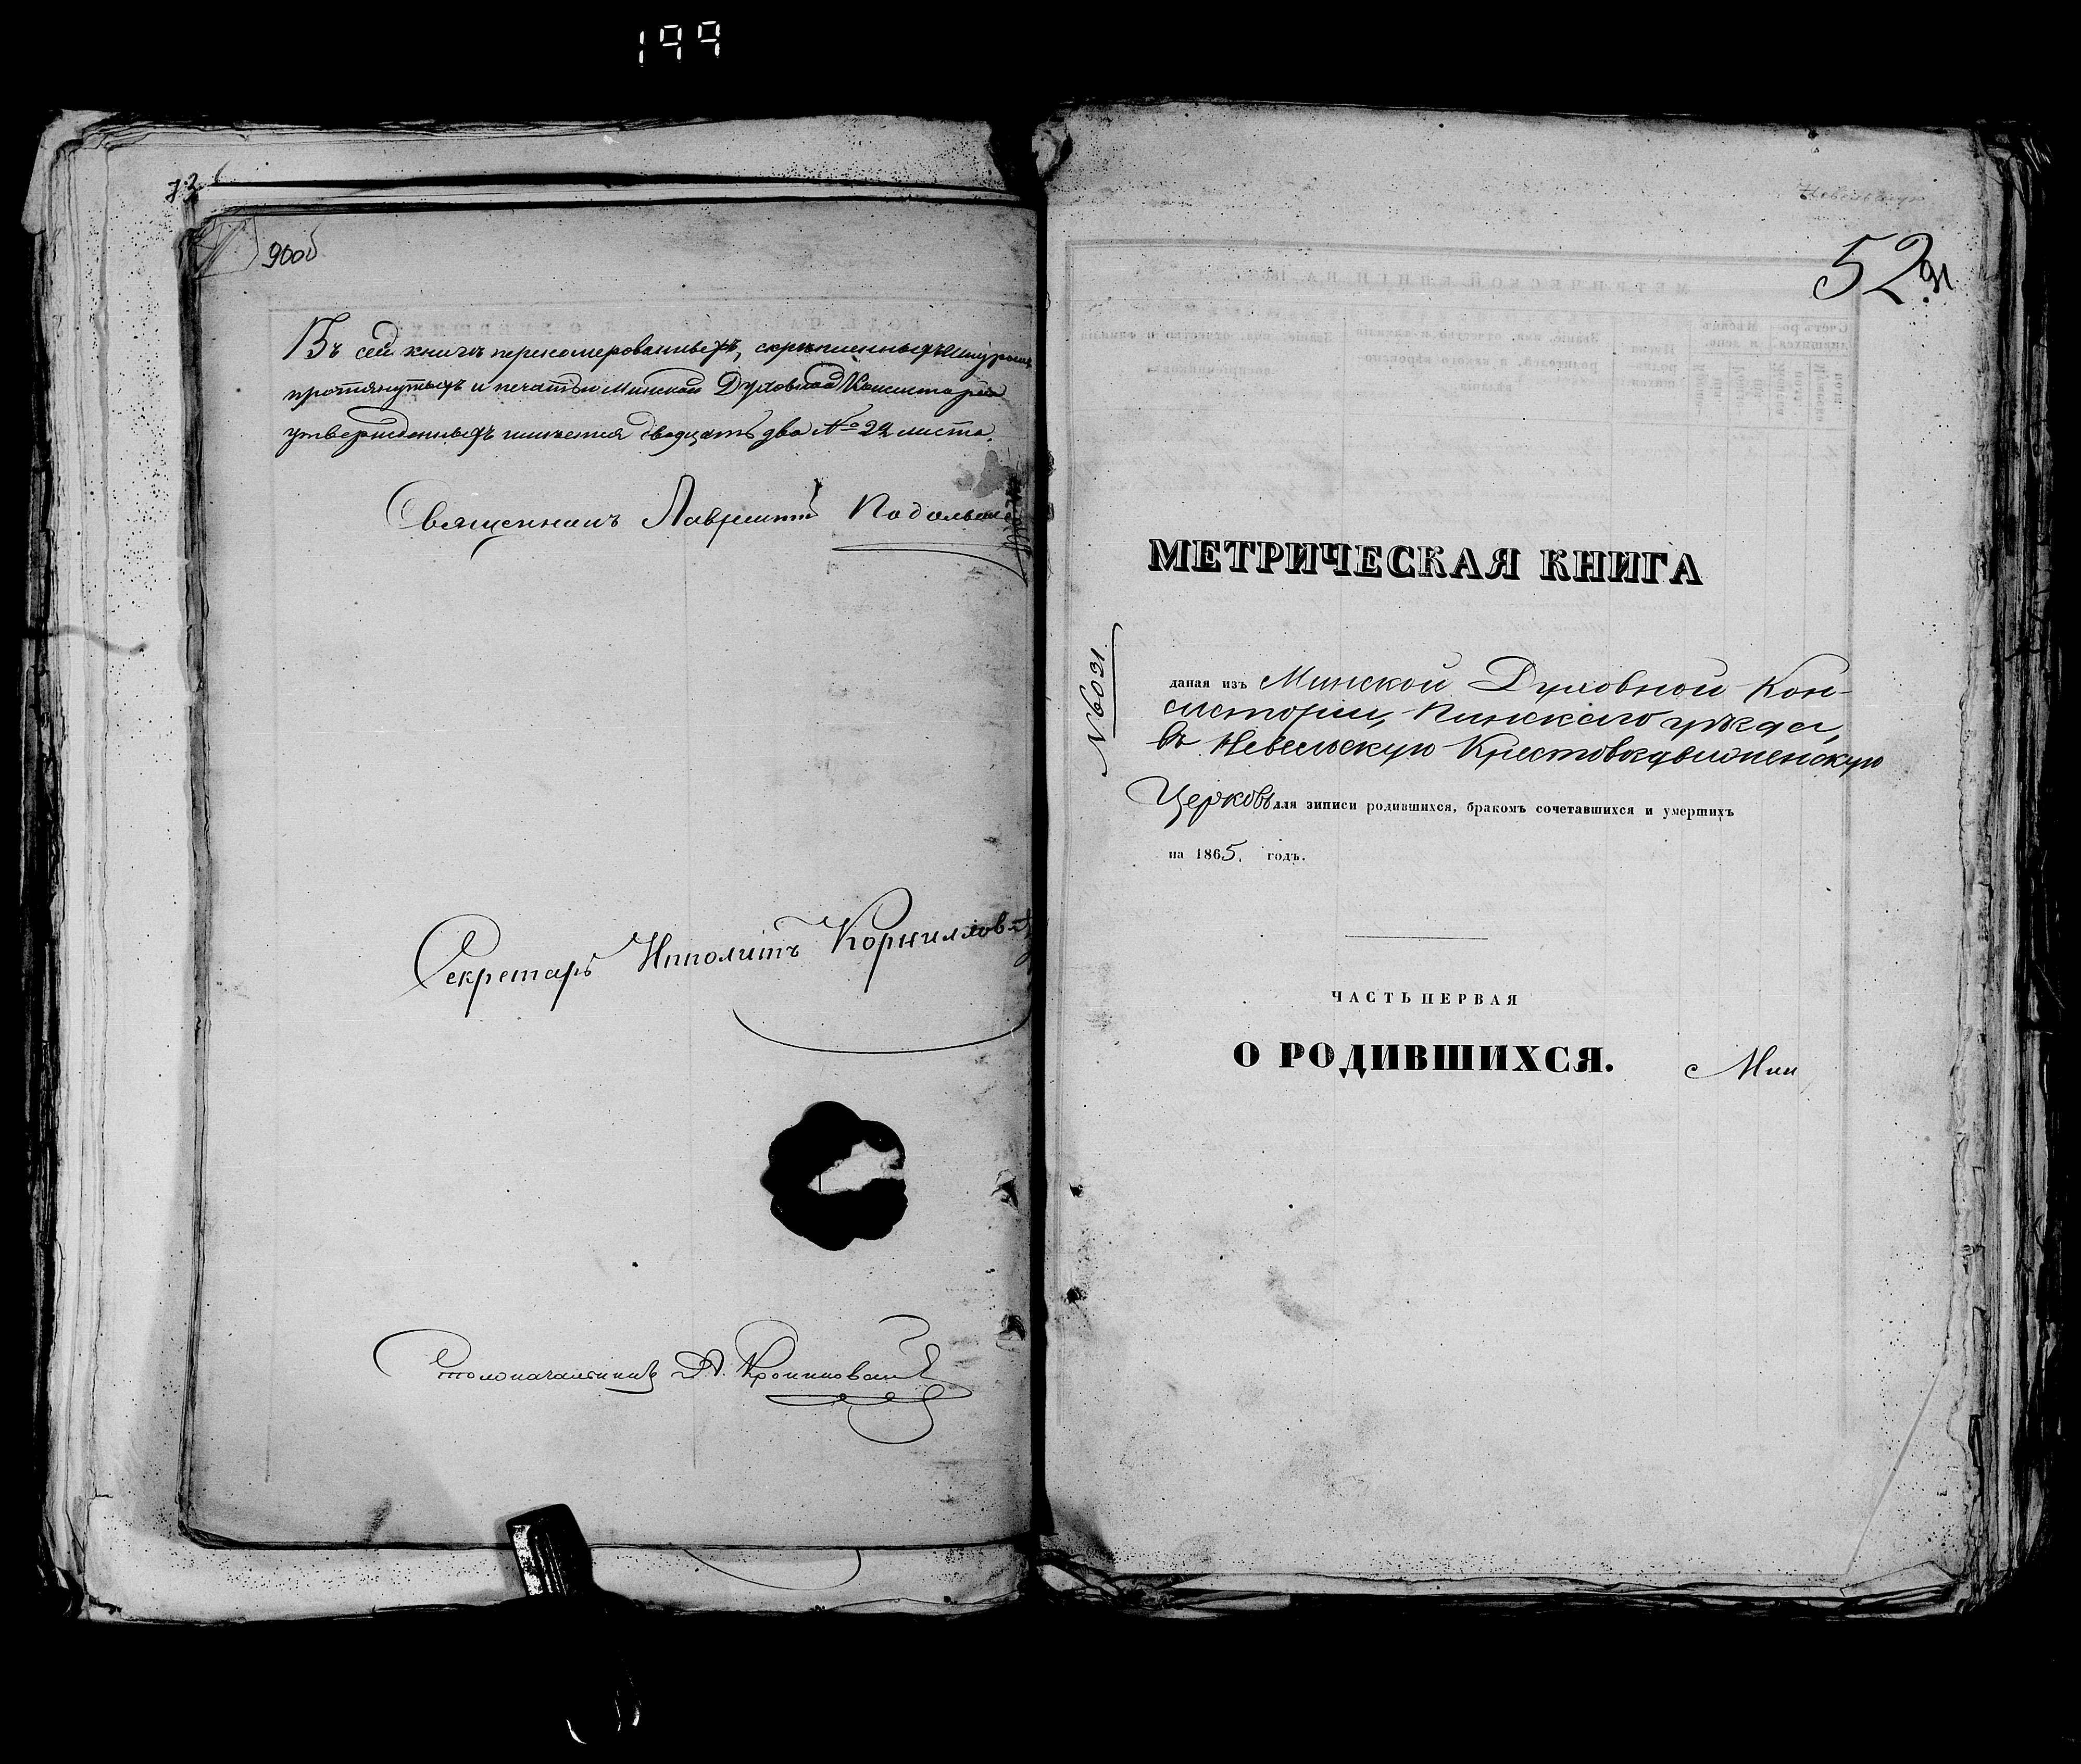 199
73
90об
Въ сей книгѣ переномерованныхъ, скрѣпленныхъ шнуромъ
протянутыхъ и печатью Минской Духовной Консисторіи
утвержденныхъ имѣется двадцать два № 22 листа.
Священникъ Лаврентій
Секретарь Ипполитъ Корниллов
Столоначальникъ
Невельскую
52.
91
МЕТРИЧЕСКАЯ КНИГА
№6031.
даная изъ Минской Духовной Кон-
систоріи, Пинскаго уѣзда,
въ Невельскую Крестовоздвиженскую
Церковь для записи родившихся, бракомъ сочетавшихся и умершихъ
на 1865. годъ.
ЧАСТЬ ПЕРВАЯ
О РОДИВШИХСЯ.
Мин